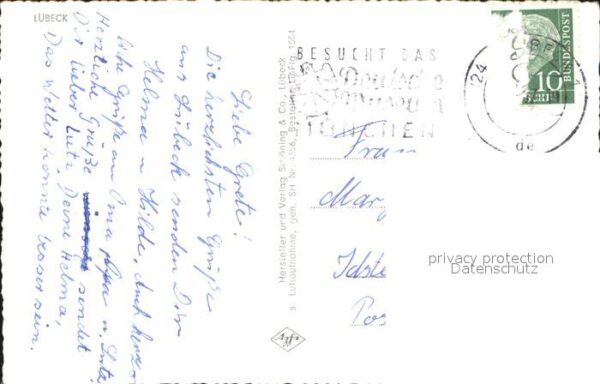 LÜBECK
Liebe Grete!
Die herzlichsten Grüße
aus Lübeck senden Dir
Helma u Hilde, Auch herz
liche Grüße an Oma Opa u. Lutz
Herzliche Grüße sendet
Dir lieber Lutz Deine Helma,
Das Wetter könnte besser sein.
Hersteller und Verlag Schöning & Co., Lübeck
Luftaufnahme, gen. SH Nr.
Agfa
BESUCHT DAS
Deutsche
Museum
MÜNCHEN
24
10
BUNDESPOST
Frau
Mar
Idste
Pos
privacy protection
Datenschutz